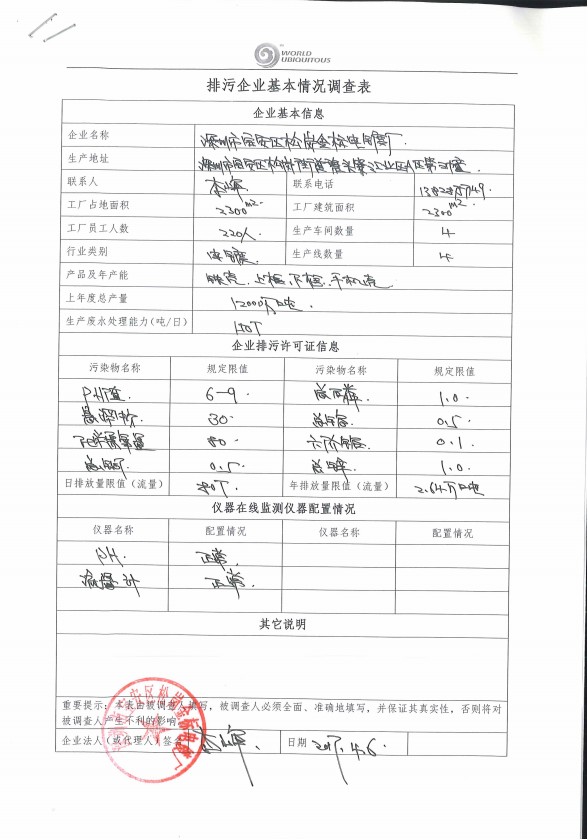 WORLD
UBIQUITOUS
排污企业基本情况调查表
企业基本信息
企业名称 深圳市宝安区松岗金标电镀厂
生产地址 深圳市宝安区松岗街道
联系人 联系电话
工厂占地面积 2300m² 工厂建筑面积 2300m²
工厂员工人数 220人 生产车间数量 4
行业类别 电镀 生产线数量 4
产品及年产能 上框、下框、手机壳
上年度总产量
生产废水处理能力(吨/日)
企业排污许可证信息
污染物名称 规定限值 污染物名称 规定限值
PH值 6-9 1.0
悬浮物 30 0.5
化学需氧量 80 六价铬 0.1
0.5 1.0
日排放量限值(流量) 年排放量限值(流量) 2.64万吨
仪器在线监测仪器配置情况
仪器名称 配置情况 仪器名称 配置情况
PH 正常
流量计 正常
其它说明
重要提示:本表由被调查人填写,被调查人必须全面、准确地填写,并保证其真实性,否则将对
被调查人产生不利的影响
企业法人(或代理人)签名 日期 2017.4.6